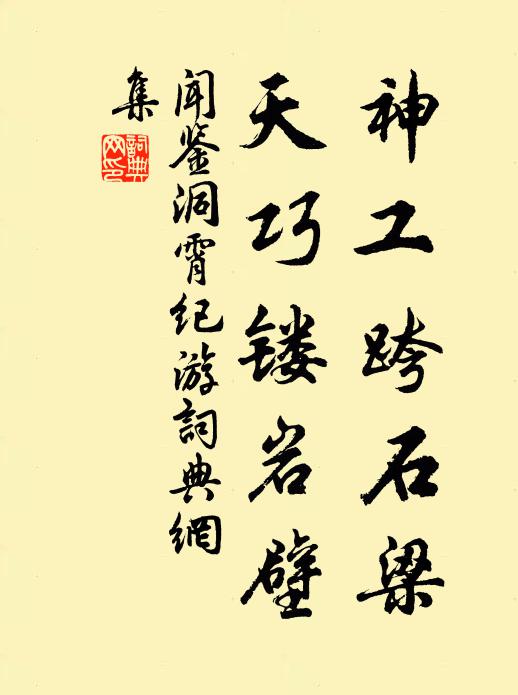 神工跨石梁
天巧镂岩壁
闻鉴洞霄纪游詞典網
集
詞典网印